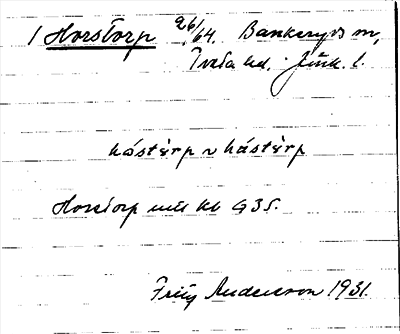 1 Horstorp 26/64. Bankeryds m,
Tveta hd. Jönk. l.
håstèrp ~ hástèrp
Horstorp mtl kl G35.
Fritz Anderson 1931.